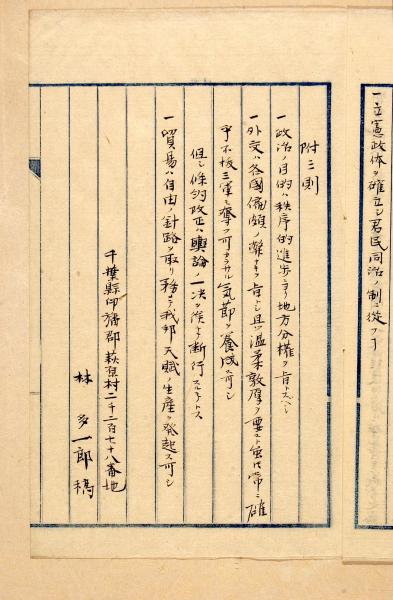 一立憲政体ヲ確立シ君民同治ノ制ニ從フヿ
附三則
一政治ノ目的ハ秩序的進歩ニシテ地方分権ヲ旨トスヘシ
一外交ハ各國偏頗ノ ナキヲ旨トシ且ツ温柔敦厚ヲ要スト虽𪜈常ニ確
乎不抜三軍モ奪フ可カラサル気節ヲ養成ス可シ
但シ條約改正ハ輿論ノ一决ヲ俟テ断行スルモノトス
一貿易ハ自由ノ針路ヲ取リ務メテ我邦天賦ノ生産ヲ発起ス可シ
千葉縣印旛郡萩原村二千二百七十八番地
林多一郎稿